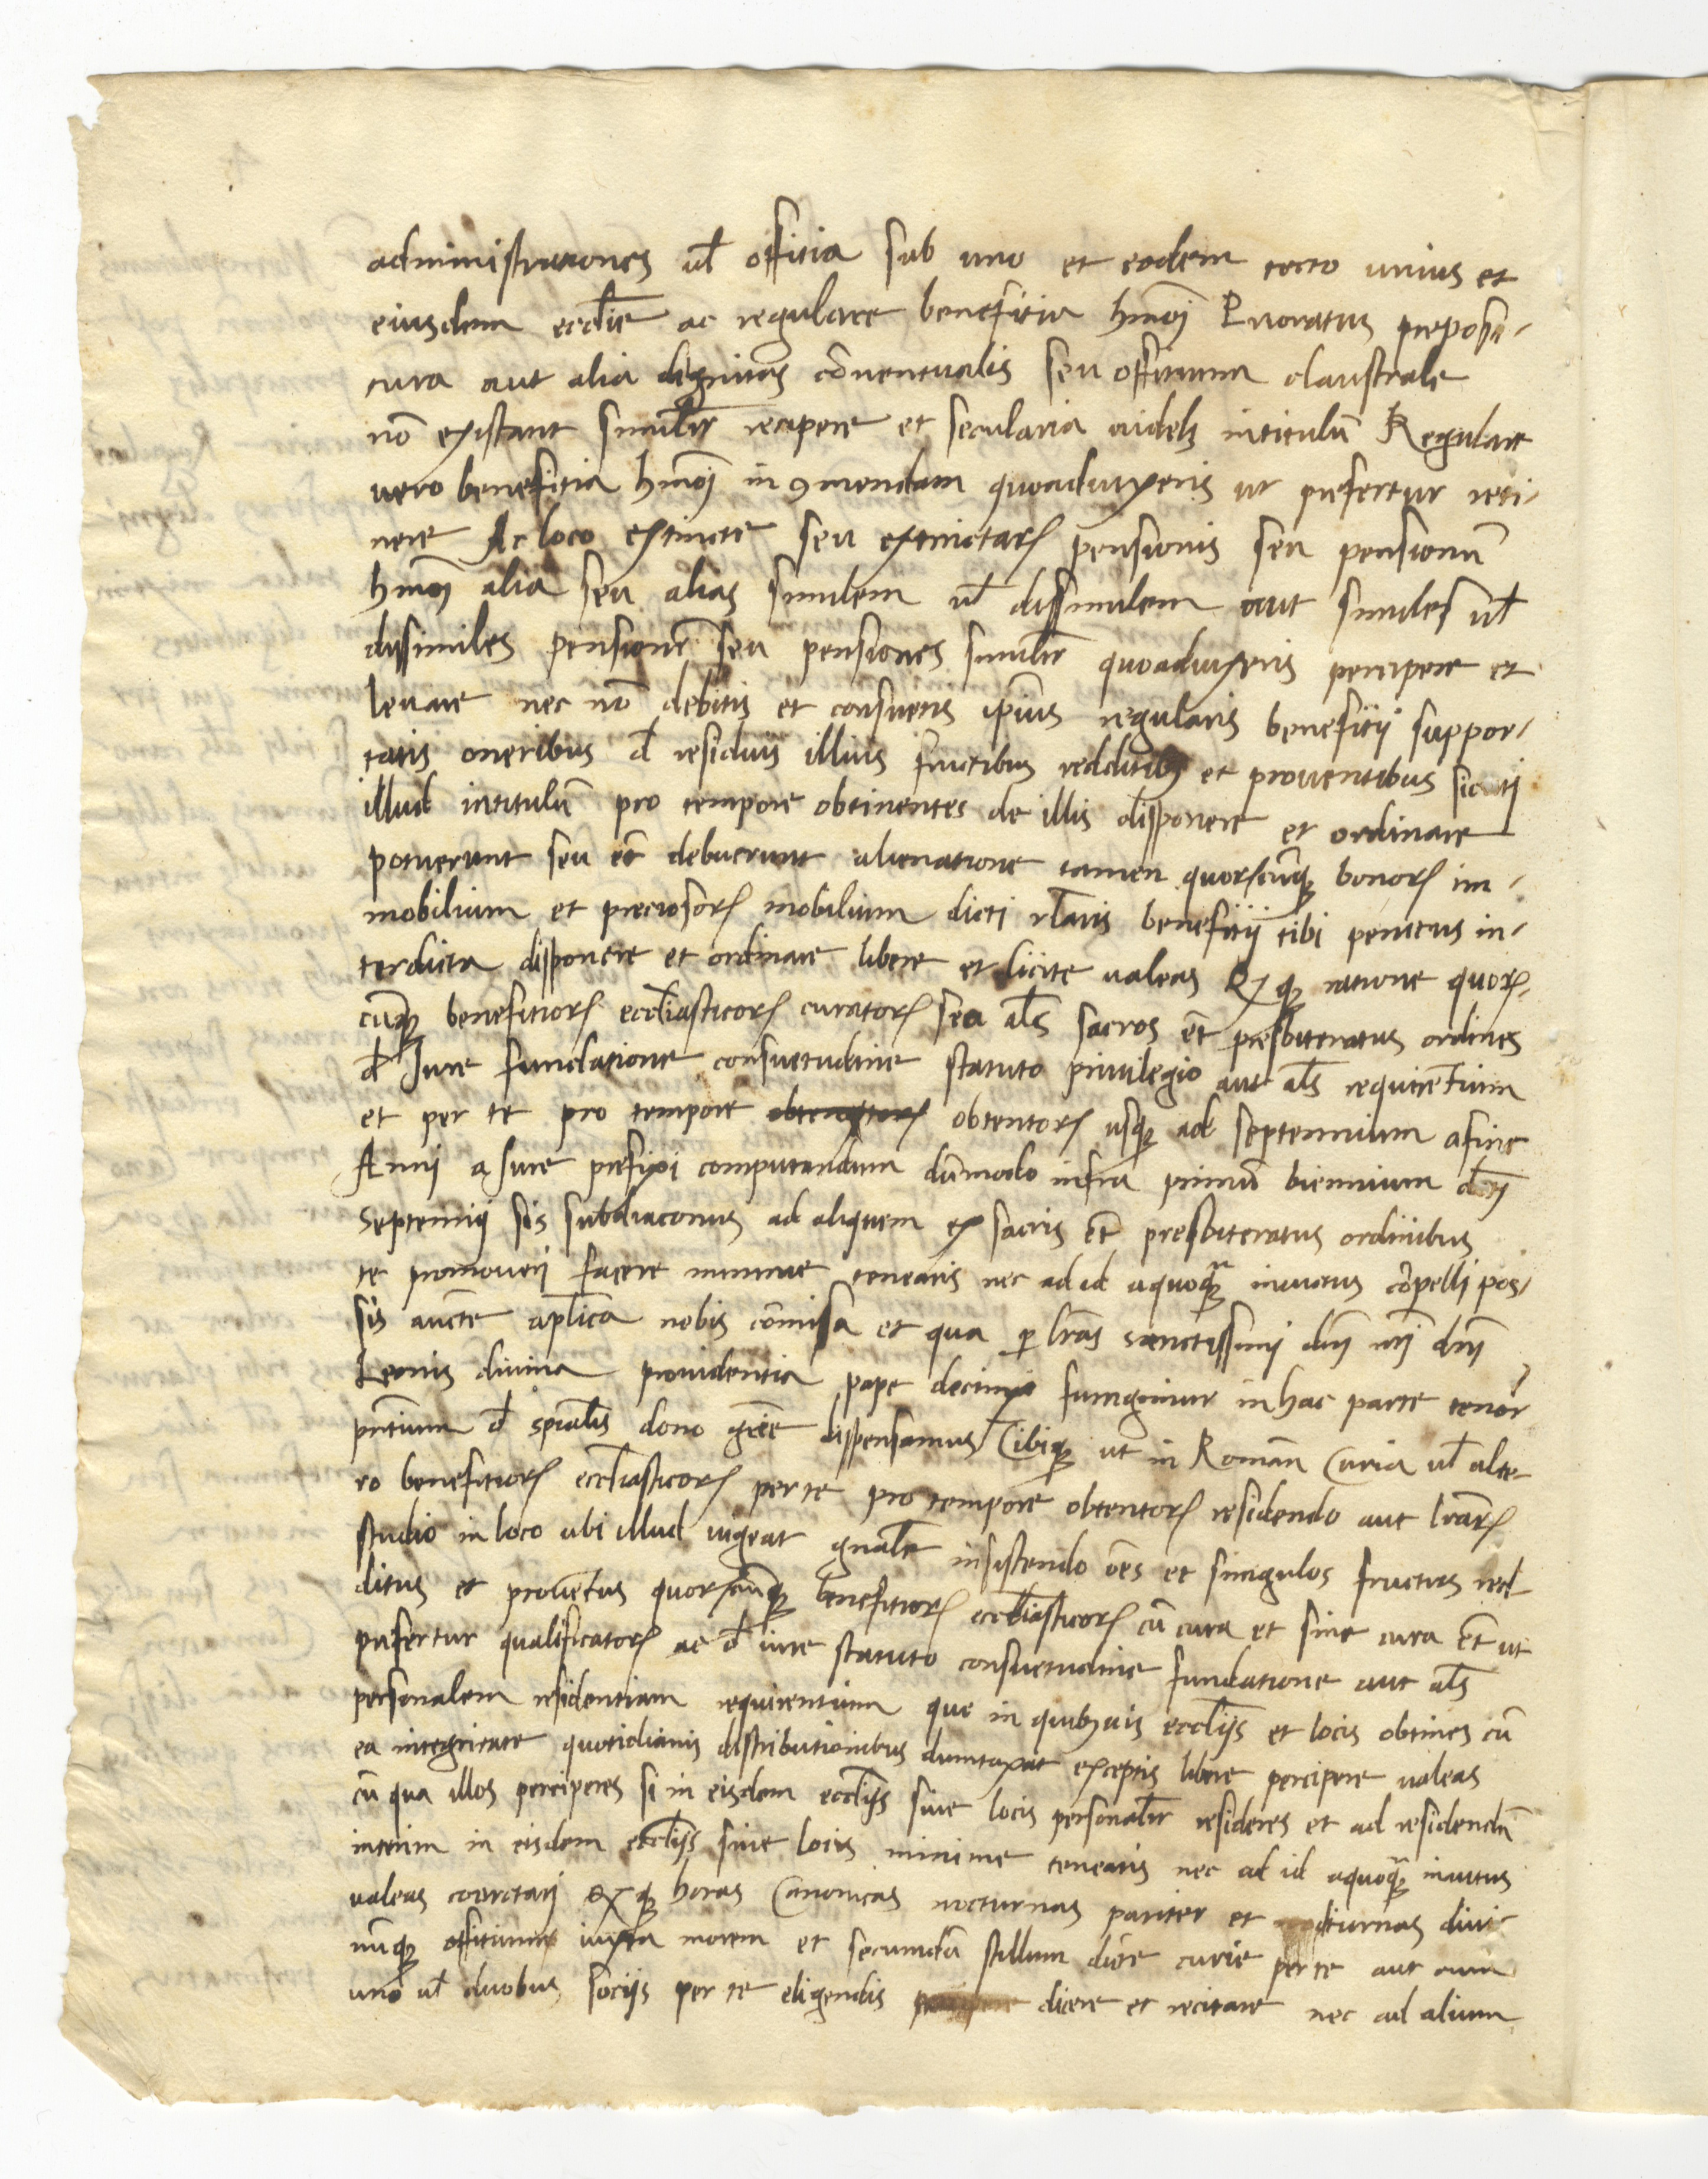 administrationes ul̄ offitia sub uno et eodem tecto unius et
eiusdem eccl̄ie ac regulare benefitia hm̄oj Prioratus preposi-
tura aut alia dignitas cōuentualis seu offitium claustrale
nō existant simil̄r recipere et secularia uidelꝫ intitulū Regulare
uero benefitia hm̄oj in ꝯmendam quoaduixeris ut prefertur reti-
nere Ac loco extincte seu extinctarꝝ pensionis seu pensionū
hm̄oj aliā seu alias similem ul̄ dissimilem aut similes ul̄
dissimiles pensionē seu pensiones simil̄r quoaduixeris percipere et
leuare nec nō debitis et consuetis ip̄ius regularis benefitij suppor-
tatis oneribus d̄ residuis illius fructibus redditibꝫ et prouentibus sicuti
illud intitulū pro tempore obtinentes de illis disponere et ordinare
potuerunt seu et̄ debuerunt alienatione tamen quorūcunqꝫ bonorꝝ im-
mobilium et preciosorꝝ mobilium dicti rl̄aris benefitij tibi penitus in-
terdicta disponere et ordinare libere et licite ualeas Et qꝫ ratione quorꝝ-
cūqꝫ benefitiorꝝ eccl̄iasticorꝝ curatorꝝ seu al̄s sacros et̄ presbiteratus ordines
d̄ Jure fundatione consuetudine statuto priuilegio aut al̄s requirentium
et per te pro tempore obtentorꝝ obtentorꝝ usqꝫ ad septennium afine
Anni a Jure prefixi computandum dūmodo infra primū biennium dc̄tj
septennij sis subdiaconus ad aliquem ex sacris et̄ presbiteratus ordinibus
te promoueri facere minime tenearis nec ad id aquoqꝫ inuitus cōpelli pos-
sis auc̄te ap̄lica nobis cōmissa et qua ꝑ lr̄as sanctissimj dn̄j nr̄j dn̄j
Leonis diuina prouidentia pape decimi fungimur in hac parte tenor̄
pn̄tium d̄ spiāl̄is dono gr̄e dispensamus Tibiqꝫ ut in Romana Curia ul̄ alte-
ro benefitiorꝝ eccl̄iasticorꝝ per te pro tempore obtentorꝝ residendo aut lr̄arꝝ
studio in loco ubi illud uigeat gnāl̄e insistendo oēs et singulos fructus red
ditus et prouētus quorꝝcunqꝫ benefitiorꝝ eccl̄iasticorꝝ cū cura et sine cura et̄ ut
prefertur qualificatorꝝ ac d̄ iure statuto consuetudine fundatione aut al̄s
personalem residentiam requirentium que in quibꝫuis eccl̄ijs et locis obtines cū
ea integritate quotidianis distributionibus dumtaxat exceptis libere percipere ualeas
cū qua illos perciperes si in eisdem eccl̄ijs siue locis personal̄r resideres et ad residendū
interim in eisdem eccl̄ijs siue locis minime tenearis nec ad id aquoqꝫ inuitus
ualeas coarctarj Et qꝫ horas Canonicas nocturnas pariter et diurnas diui-
nūqꝫ offitium iuxta morem et secundū stillum dic̄te curie per te aut cum
uno ul̄ duobus socijs per te eligendis dicere et recitare nec ad alium